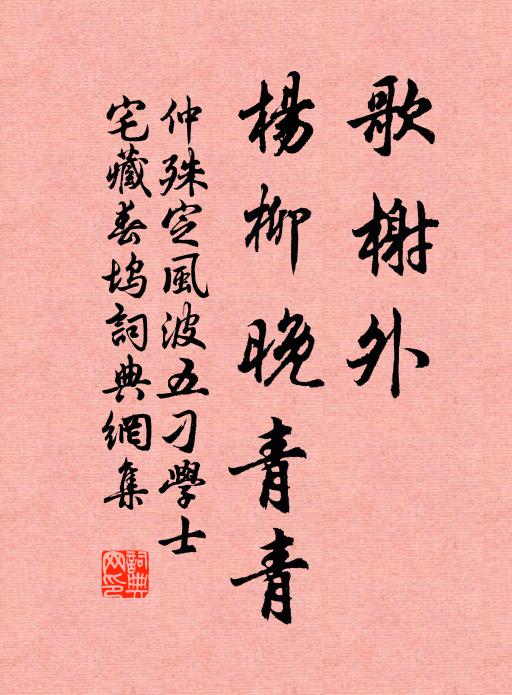 歌榭外
楊柳晚青青
仲殊定風波五刁學士
宅藏春塢詞典網集
詞典
网印